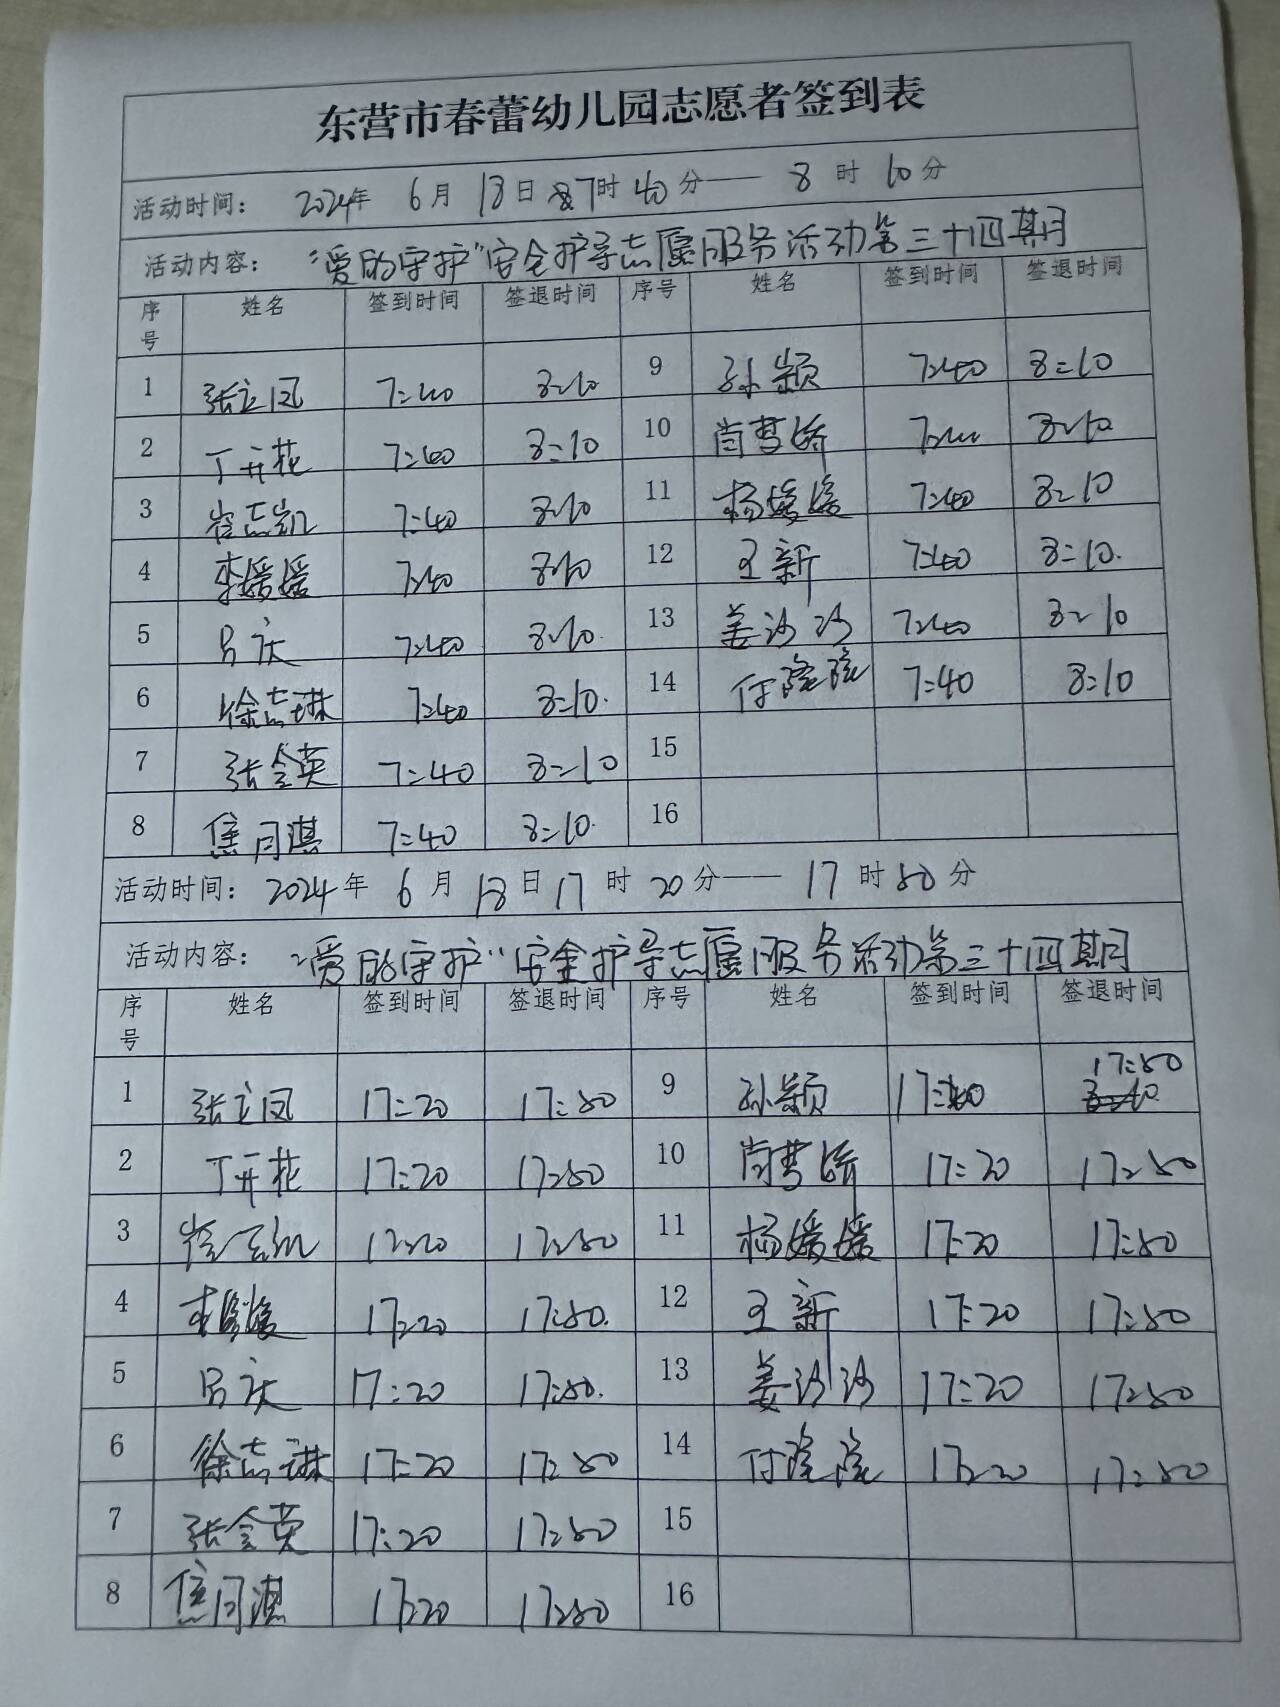 东营市春蕾幼儿园志愿者签到表
活动时间： 2024年 6月 18日 7时 40分—— 8时 10分
活动内容： “爱的守护”安全护导志愿服务活动第三十四期
序号 姓名 签到时间 签退时间 序号 姓名 签到时间 签退时间
1 张立凤 7:40 8:10 9 孙颖 7:40 8:10
2 丁开花 7:40 8:10 10 肖梦娇 7:40 8:10
3 崔志凯 7:40 8:10 11 杨媛媛 7:40 8:10
4 李媛媛 7:40 8:10 12 王新 7:40 8:10.
5 吕庆 7:40 8:10. 13 姜沙沙 7:40 8:10
6 徐志琳 7:40 8:10. 14 付隆隆 7:40 8:10
7 张会英 7:40 8:10 15
8 焦月淇 7:40 8:10. 16
活动时间： 2024年 6月 18日 17时 20分—— 17时 50分
活动内容： “爱的守护”安全护导志愿服务活动第三十四期
序号 姓名 签到时间 签退时间 序号 姓名 签到时间 签退时间
1 张立凤 17:20 17:50 9 孙颖 17:20 17:50
2 丁开花 17:20 17:50 10 肖梦娇 17:20 17:50
3 崔志凯 17:20 17:50 11 杨媛媛 17:20 17:50
4 李媛媛 17:20 17:50. 12 王新 17:20 17:50
5 吕庆 17:20 17:50. 13 姜沙沙 17:20 17:50
6 徐志琳 17:20 17:50 14 付隆隆 17:20 17:50
7 张会英 17:20 17:50 15
8 焦月淇 17:20 17:50 16